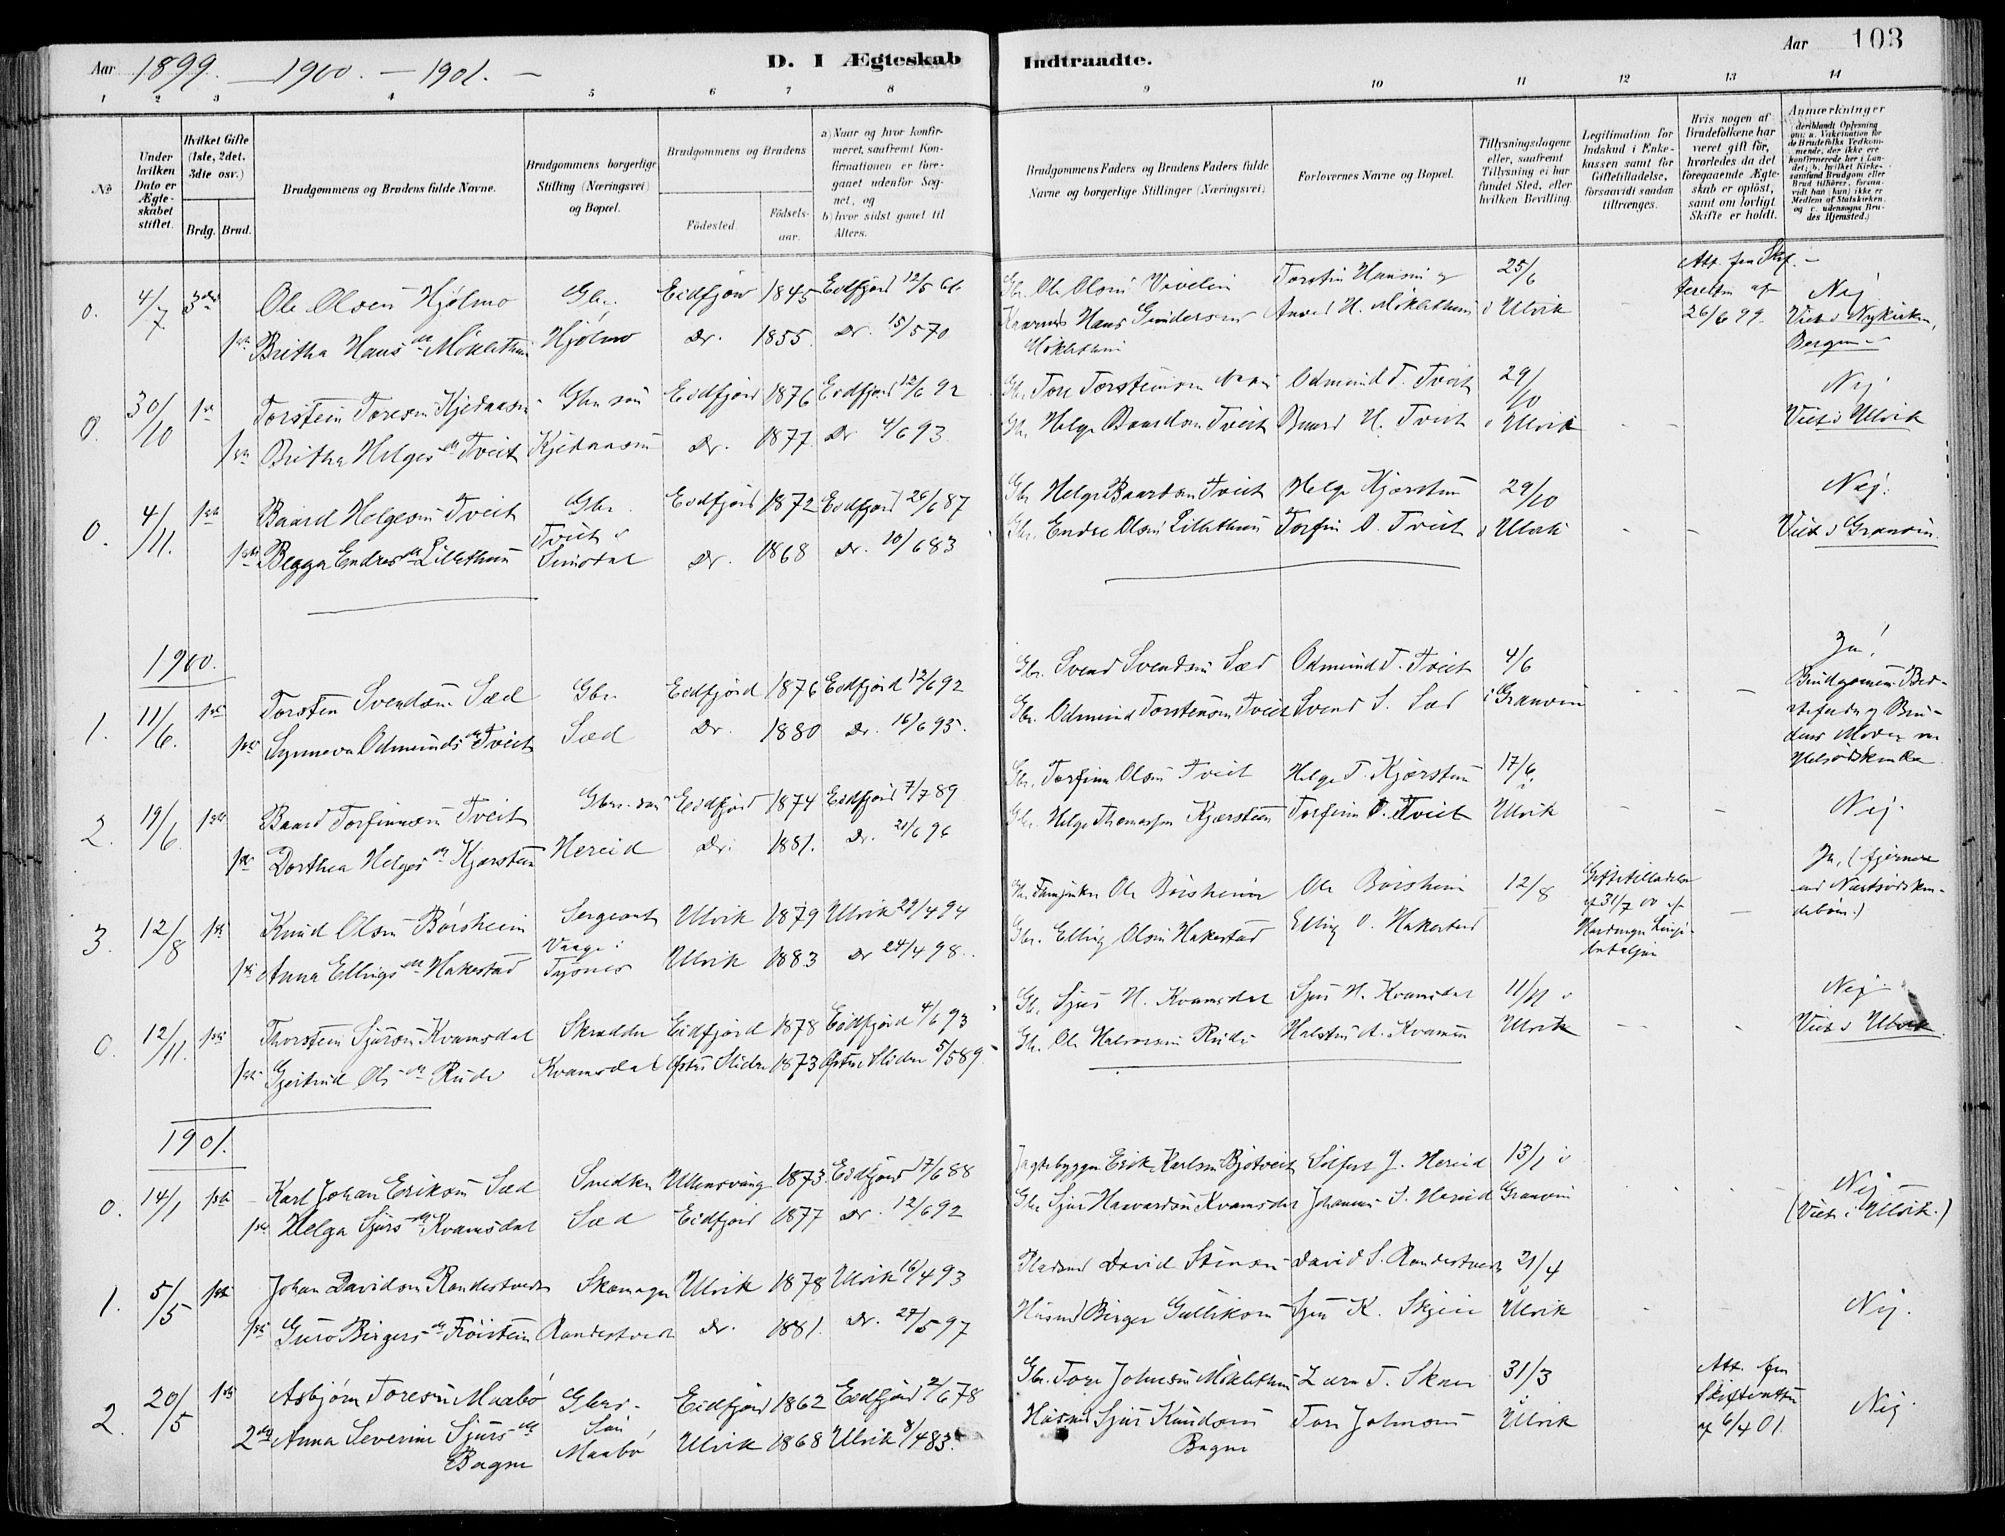 Aar 1899. — 1900. — 1901. —
D. I Ægteskab Indtraadte.
Aar 103
1 2 3 4 5 6 7 8 9 10 11 12 13 14
No
Under hvilken Dato er Ægteskabet stiftet.
Hvilket Gifte (1ste, 2det, 3dte osv.)
Brdg. Brud.
Brudgommens og Brudens fulde Navne.
Brudgommens borgerlige Stilling (Næringsvei) og Bopæl.
Brudgommens og Brudens
Fødested. Fødselsaar.
a) Naar og hvor konfirmeret, saafremt Konfirmationen er foregaaet udenfor Sognet, og
b) hvor sidst gaaet til Alters.
Brudgommens Faders og Brudens Faders fulde Navne og borgerlige Stillinger (Næringsvei)
Forlovernes Navne og Bopæl.
Tillysningsdagene eller, saafremt Tillysning ei har fundet Sted, efter hvilken Bevilling.
Legitimation for Indskud i Enkekassen samt for Giftetilladelse, forsaavidt saadan tiltrænges.
Hvis nogen af Brudefolkene har været gift før, hvorledes da det foregaaende Ægteskab er opløst, samt om lovligt Skifte er holdt.
Anmærkninger
0. 4/7 3die Ole Olsen Hjølmo Gbr. Eidfjord 1845 Eidfjord 12/5 61 Gbr. Ole Olsen Vivelin Torstein Hansen og 25/6 Att. fra Skifteretten af 26/6 99. Nej
1ste Britha Hansda Miklethun Hjølmo Do. 1855 Do. 15/5 70 Hans Gundersen Miklethun H. Miklethun i Ulvik Viet i Nykirken, Bergen
0. 30/10 1ste Torstein Toresen Kjedaasen Gbr. søn Eidfjord 1876 Eidfjord 12/6 92 Gbr. Tore Torsteinsen Odmund T. Tveit 29/10 Nej
1ste Britha Helgesda Tveit Kjedaasen Do. 1877 Do. 4/6 93 Gbr. Helge Baardsen Tveit Baard H. Tveit i Ulvik Viet i Ulvik
0. 4/11. 1ste Baard Helgesen Tveit Gbr. Eidfjord 1872 Eidfjord 26/6 87 Gbr. Helge Baardsen Tveit Helge Kjærsten 29/10 Nej.
1ste Begga Endresda Lillethun Tveit i Simodal Do. 1868 Do. 10/6 83 Gbr. Endre Olsen Lillethun Torfin O. Tveit i Ulvik Viet i Granvin
1900.
1. 11/6. 1ste Torsten Svendsen Sæd Gbr. Eidfjord 1876 Eidfjord 12/6 92 Gbr. Svend Svendsen Sæd Odmund T. Tveit 4/6 Ja!
1ste Synneva Odmundsda Tveit Sæd Do. 1880 Do. 16/6 95. Gbr. Odmund Torstensen Tveit Svend S. Sæd i Granvin Brudgommens Bedstefader og Brudens Moder
2. 19/6. 1ste Baard Torfinnsen Tveit Gbr. søn Eidfjord 1874 Eidfjord 7/7 89 Gbr. Torfinn Olsen Tveit Helge T. Kjærsten 17/6 i
1ste Dorthea Helgesda Kjærsten Hereid Do. 1881. Do. 21/6 96 Gbr. Helge Thomassen Kjærsten Torfinn O. Tveit Ulvik Nej.
3. 12/8 1ste Knud Olsen Børsheim Sergeant Ulvik 1879 Ulvik 29/4 94 Ole Børsheim Ole Børsheim 12/8 Giftetilladelse af 31/7 00 Ja, (fjernere end Næstsødskendebørn.)
1ste Anna Ellingsda Hakestad Vaage i Tysnes Ulvik 1883 Do 24/4 98. Gbr. Elling Olsen Hakestad Elling O. Hakestad Hardanger bataljon
0. 12/11. 1ste Thorstein Sjursen Kvamsdal Skrædder Eidfjord 1878 Eidfjord 4/6 93 Gbr. Sjur H. Kvamsdal Sjur H. Kvamsdal 11/11 i Nej.
1ste Gjertrud Olsda Rude Kvamsdal Østre Slidre 1873 Østre Slidre 5/5 89 Gbr. Ole Halvorsen Rude Halsten A. Kvamen Ulvik Viet i Ulvik.
1901.
0. 14/1 1ste Karl Johan Eriksen Sæd Snedker Ullensvang 1873 Eidfjord 17/6 88 Jagtebygger Erik Karlsen Bjotveit Solfest J. Hereid 13/1 i Nej
1ste Helga Sjursda Kvamsdal Sæd Eidfjord 1877 Do. 12/6 92 Gbr Sjur Haavardsen Kvamsdal Johannes S. Hereid Granvin (Viet i Ulvik.)
1. 5/5 1ste Johan Davidsen Randestveit Skomager Ulvik 1878 Ulvik 16/4 93 Pladsmd David Steinsen David S. Randestveit 21/4
1ste Guro Birgersda Frøistein Randestveit Do. 1881. Do. 27/5 97 Husmd Birger Gulliksen Sjur K. Skeie Ulvik Nej.
2. 20/5 1ste Asbjørn Toresen Maabø Gbr.-Søn Eidfjord 1862 Eidfjord 2/6 78 Gbr. Tore Johnsen Miklethun Lars T. Skaar 31/3 Att. fra Skifteretten af 6/4 01. Nej
2det Anna Severine Sjursda Bagne Maabø Ulvik 1868 Ulvik 8/4 83. Husmd Sjur Knudsen Bagne Tore Johnsen i Ulvik